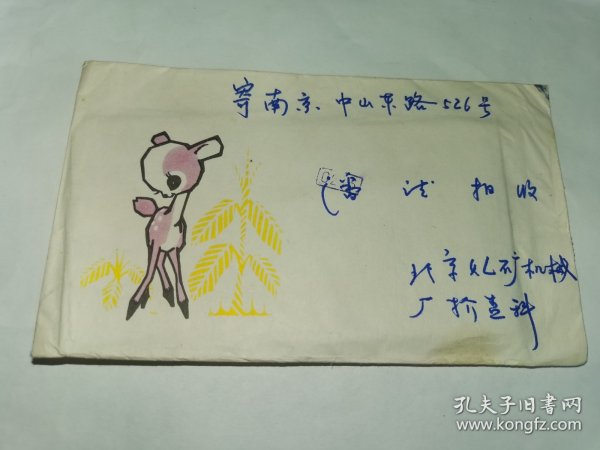 寄南京.中山东路526号
试拍收
北京化矿机械
厂检查科
孔夫子旧书网
www.kongfz.com